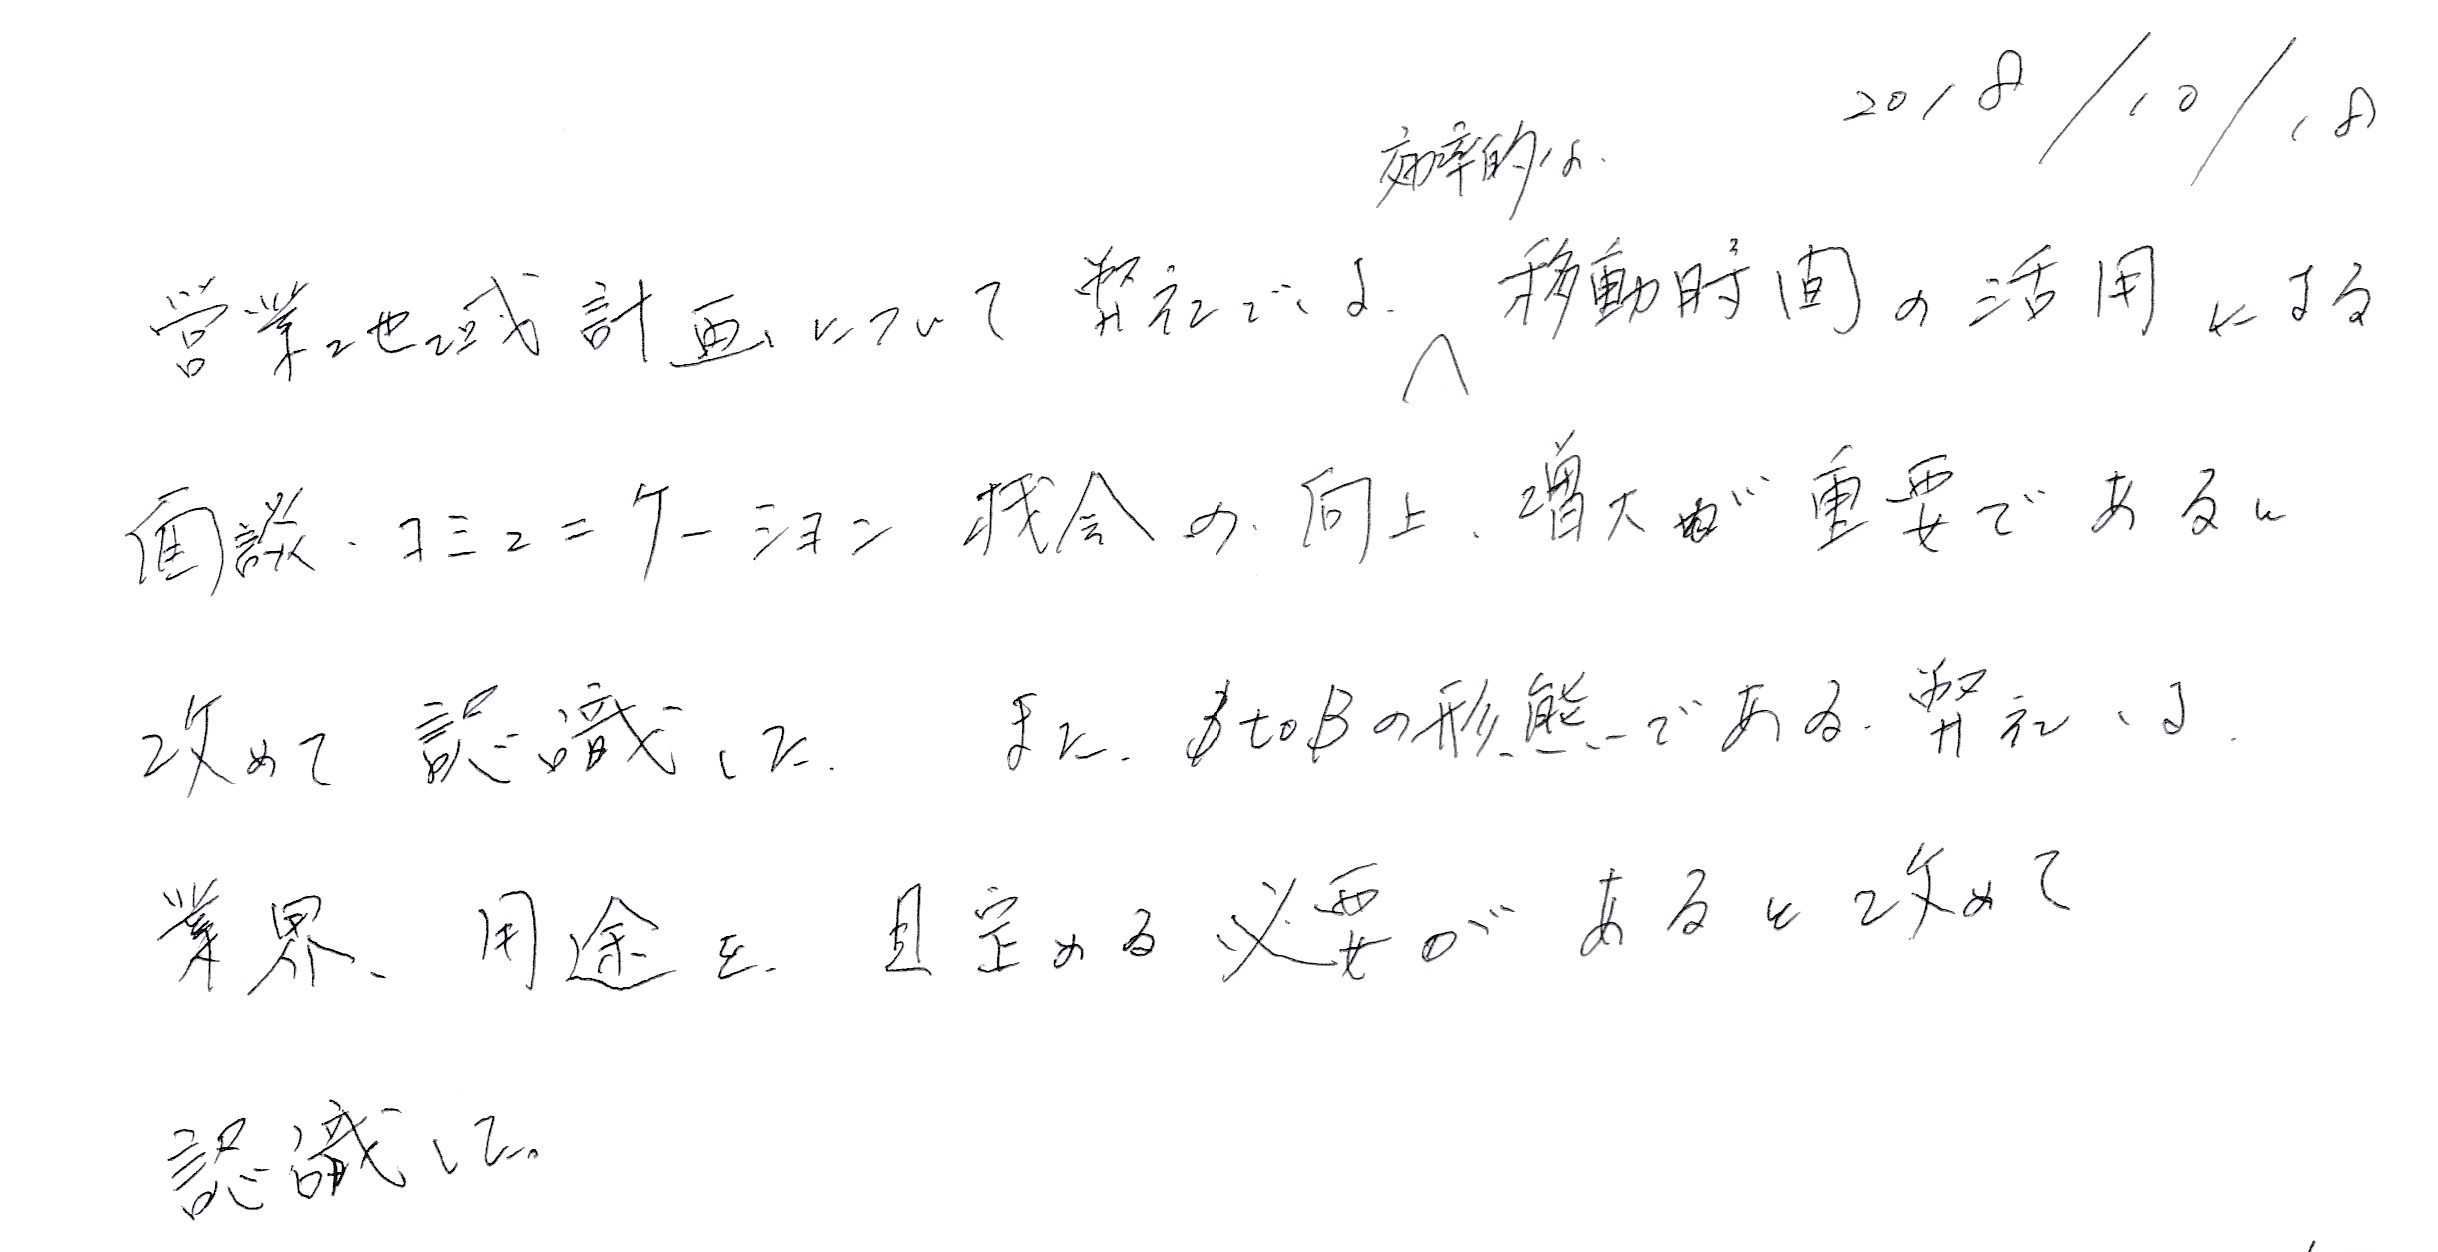 2018/10/18
効率的な
営業地域計画について弊社では、移動時間の活用による
面談・コミュニケーション機会の向上、増大が重要であると
改めて認識した。また、BtoBの形態である弊社は、
業界、用途を、見定める必要があると改めて
認識した。